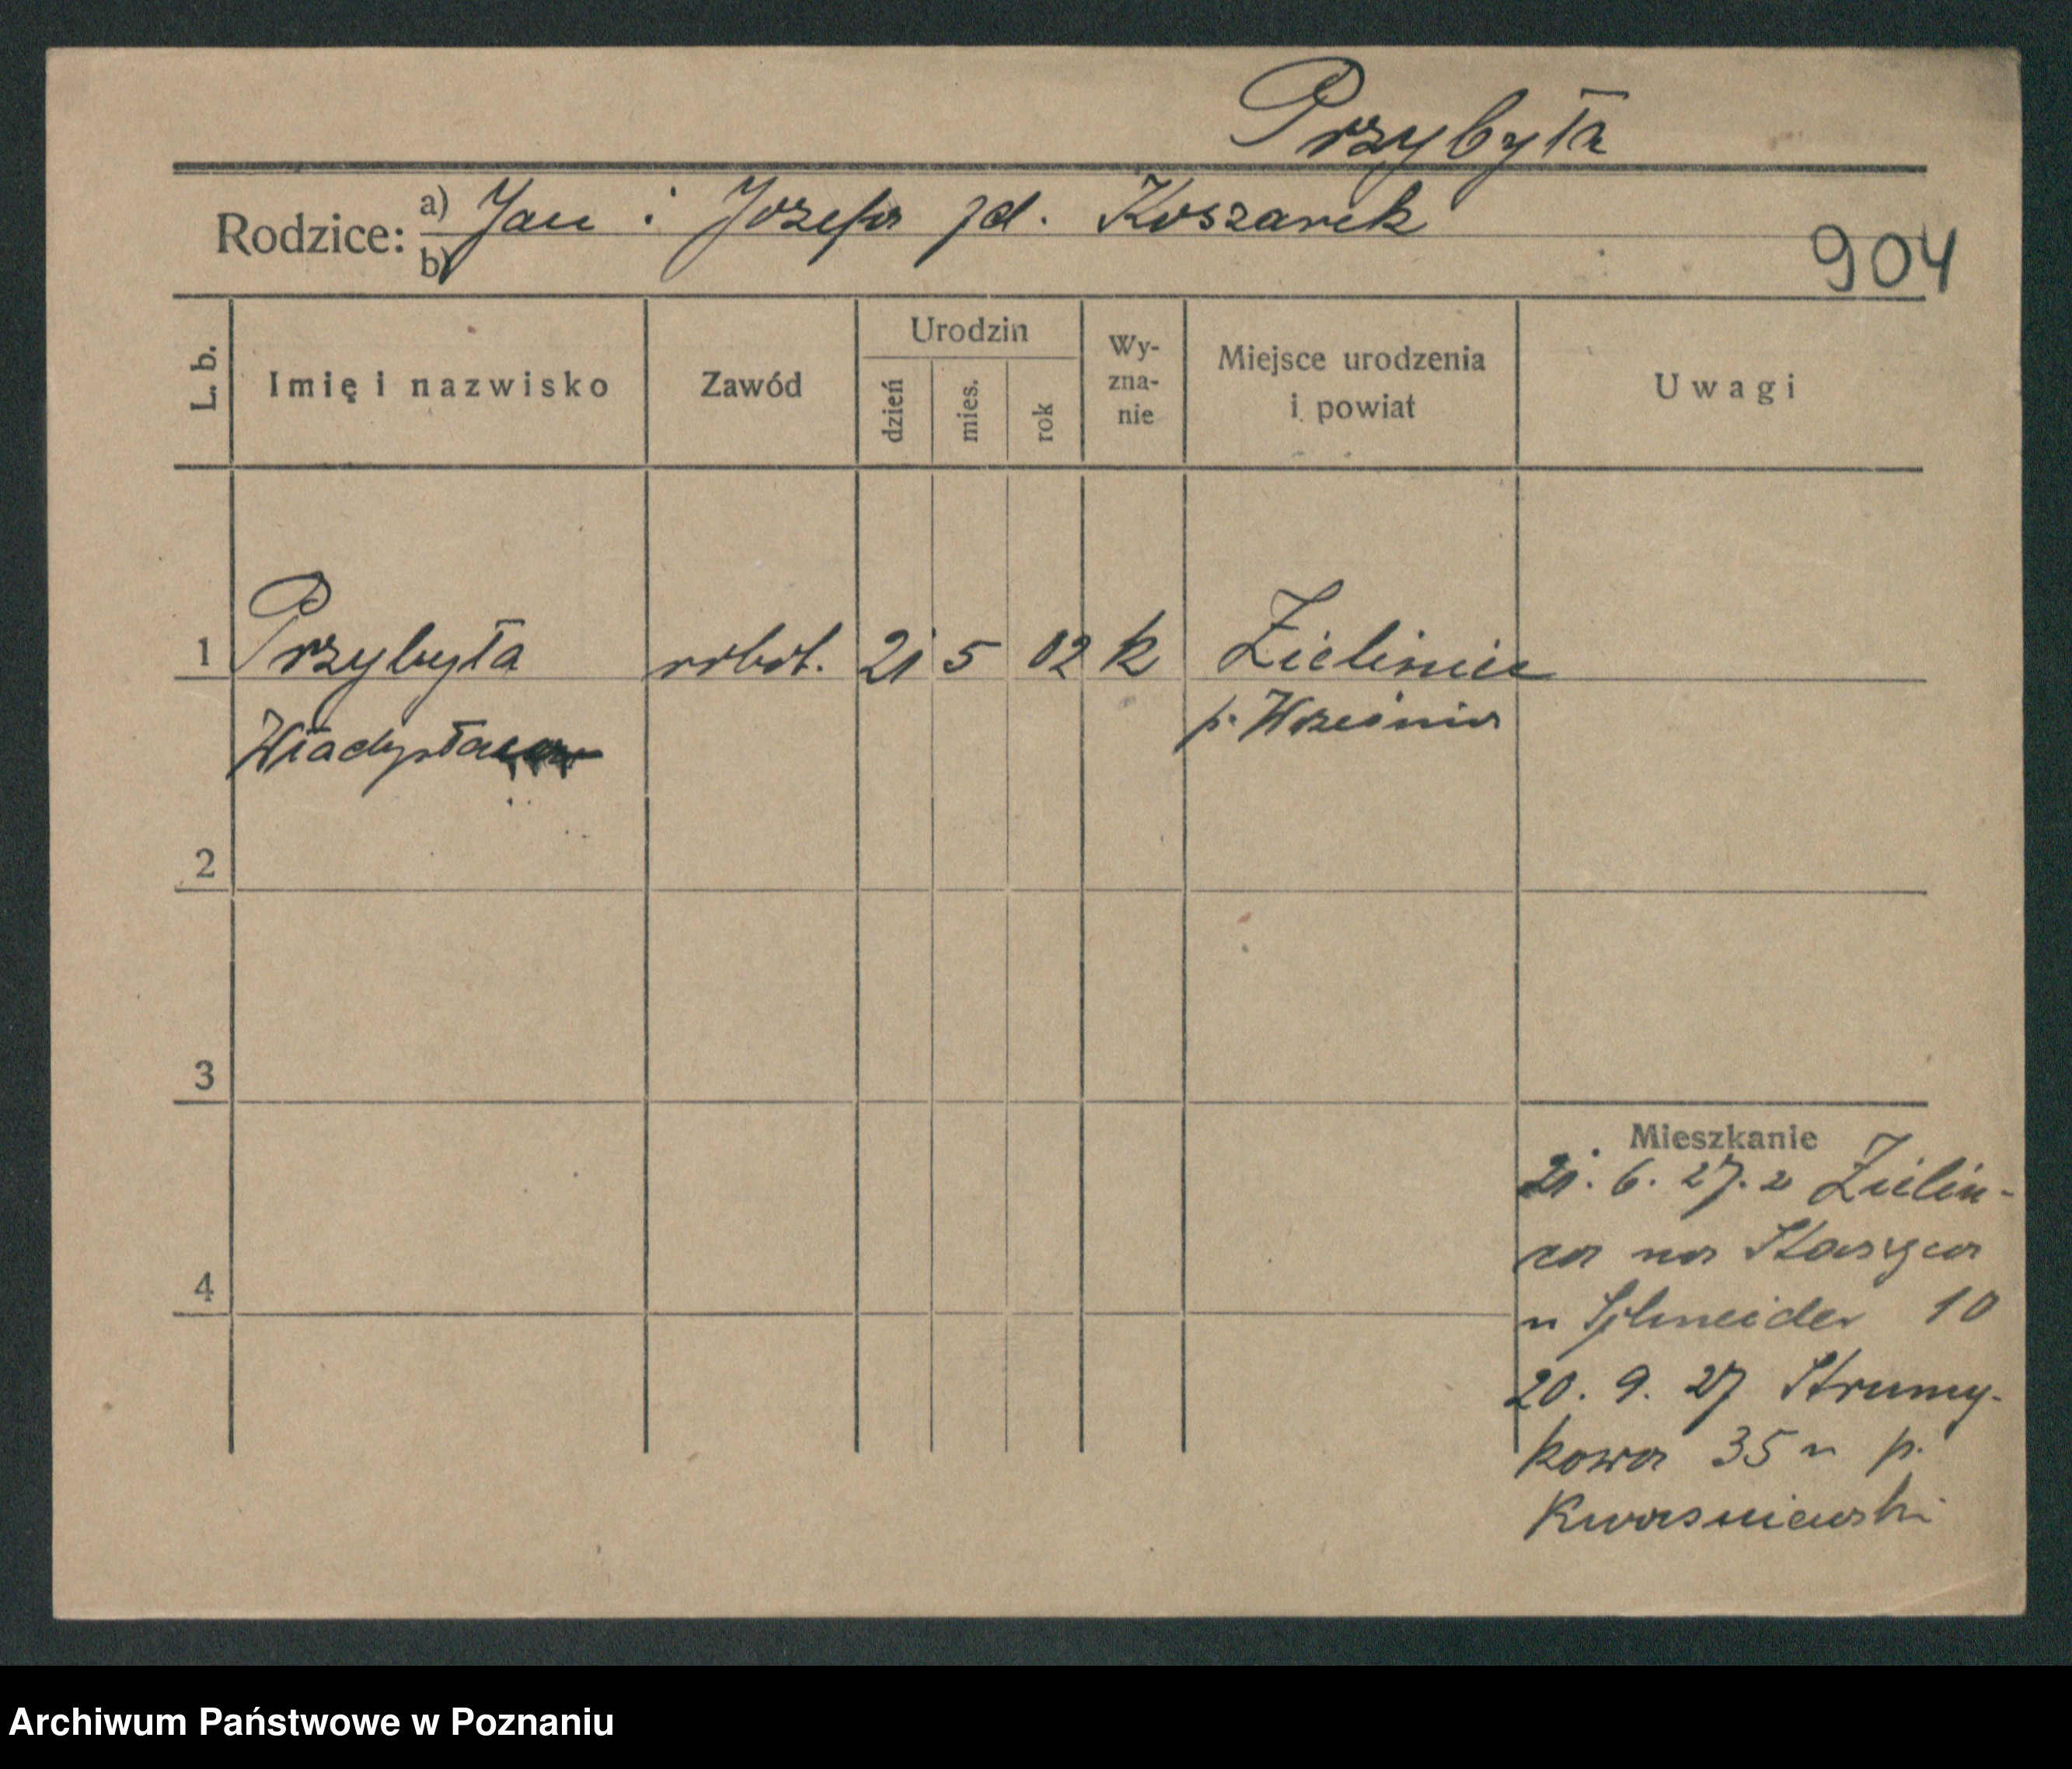 Przybyła
Rodzice: a) Jan i Józefa zd. Koszarek
b)
904
L. b.
Imię i nazwisko
Zawód
Urodzin
dzień
mies.
rok
Wy-
zna-
nie
Miejsce urodzenia
i powiat
Uwagi
1 Przybyła robot. 21 5 02 k Zieliniec
Władysław p. Września
2
3
4
Mieszkanie
21. 6. 27. z Zielin-
ca na Staszyca
u Schneider 10
20. 9. 27 Strumy-
kowa 35 u p.
Kwaśniewski
Archiwum Państwowe w Poznaniu